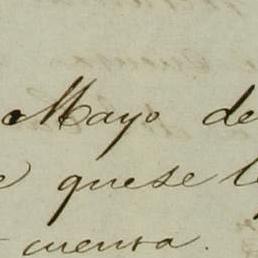 Mayo de
quese
cuenta.